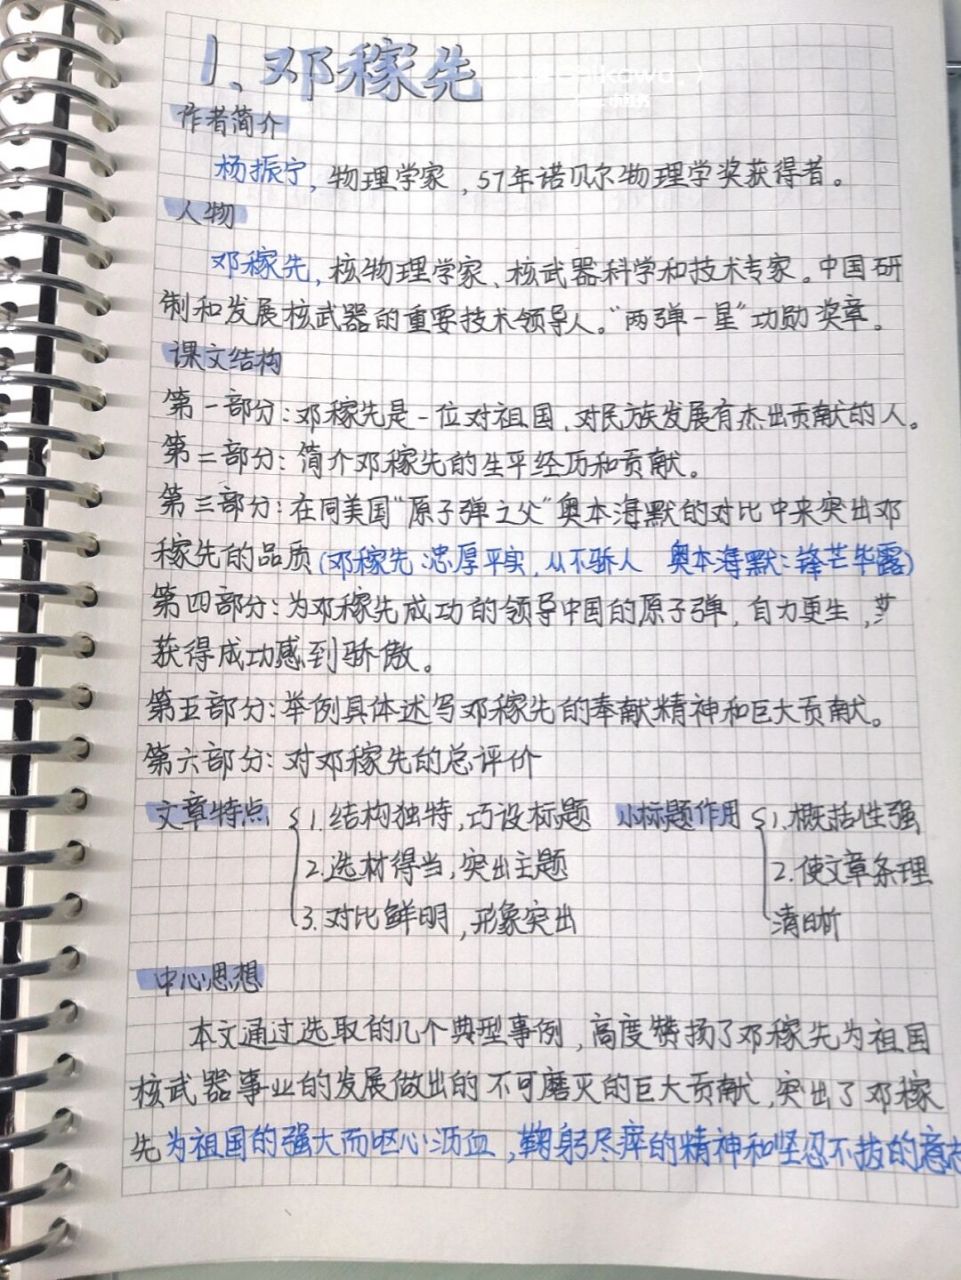 1、邓稼先
作者简介
杨振宁，物理学家，57年诺贝尔物理学奖获得者。
人物
邓稼先，核物理学家、核武器科学和技术专家。中国研
制和发展核武器的重要技术领导人。“两弹一星”功勋奖章。
课文结构
第一部分：邓稼先是一位对祖国，对民族发展有杰出贡献的人。
第二部分：简介邓稼先的生平经历和贡献。
第三部分：在同美国“原子弹之父”奥本海默的对比中来突出邓
稼先的品质(邓稼先：忠厚平实，从不骄人 奥本海默：锋芒毕露)
第四部分：为邓稼先成功的领导中国的原子弹，自力更生，
获得成功感到骄傲。
第五部分：举例具体述写邓稼先的奉献精神和巨大贡献。
第六部分：对邓稼先的总评价
文章特点 1.结构独特，巧设标题 小标题作用 1.概括性强
2.选材得当，突出主题 2.使文章条理
3.对比鲜明，形象突出 清晰
中心思想
本文通过选取的几个典型事例，高度赞扬了邓稼先为祖国
核武器事业的发展做出的不可磨灭的巨大贡献，突出了邓稼
先为祖国的强大而呕心沥血，鞠躬尽瘁的精神和坚忍不拔的意志